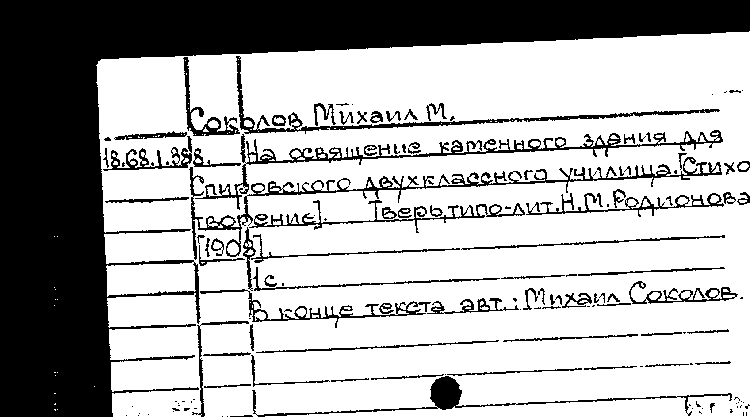 Соколов, Михаил М.
18.68.1.388. На освящение каменного здания для
Спировского двухклассного училища.[Стихо
творение]. Тверь,типо-лит.Н.М.Родионова
[1908].
1с.
В конце текста авт.: Михаил Соколов.